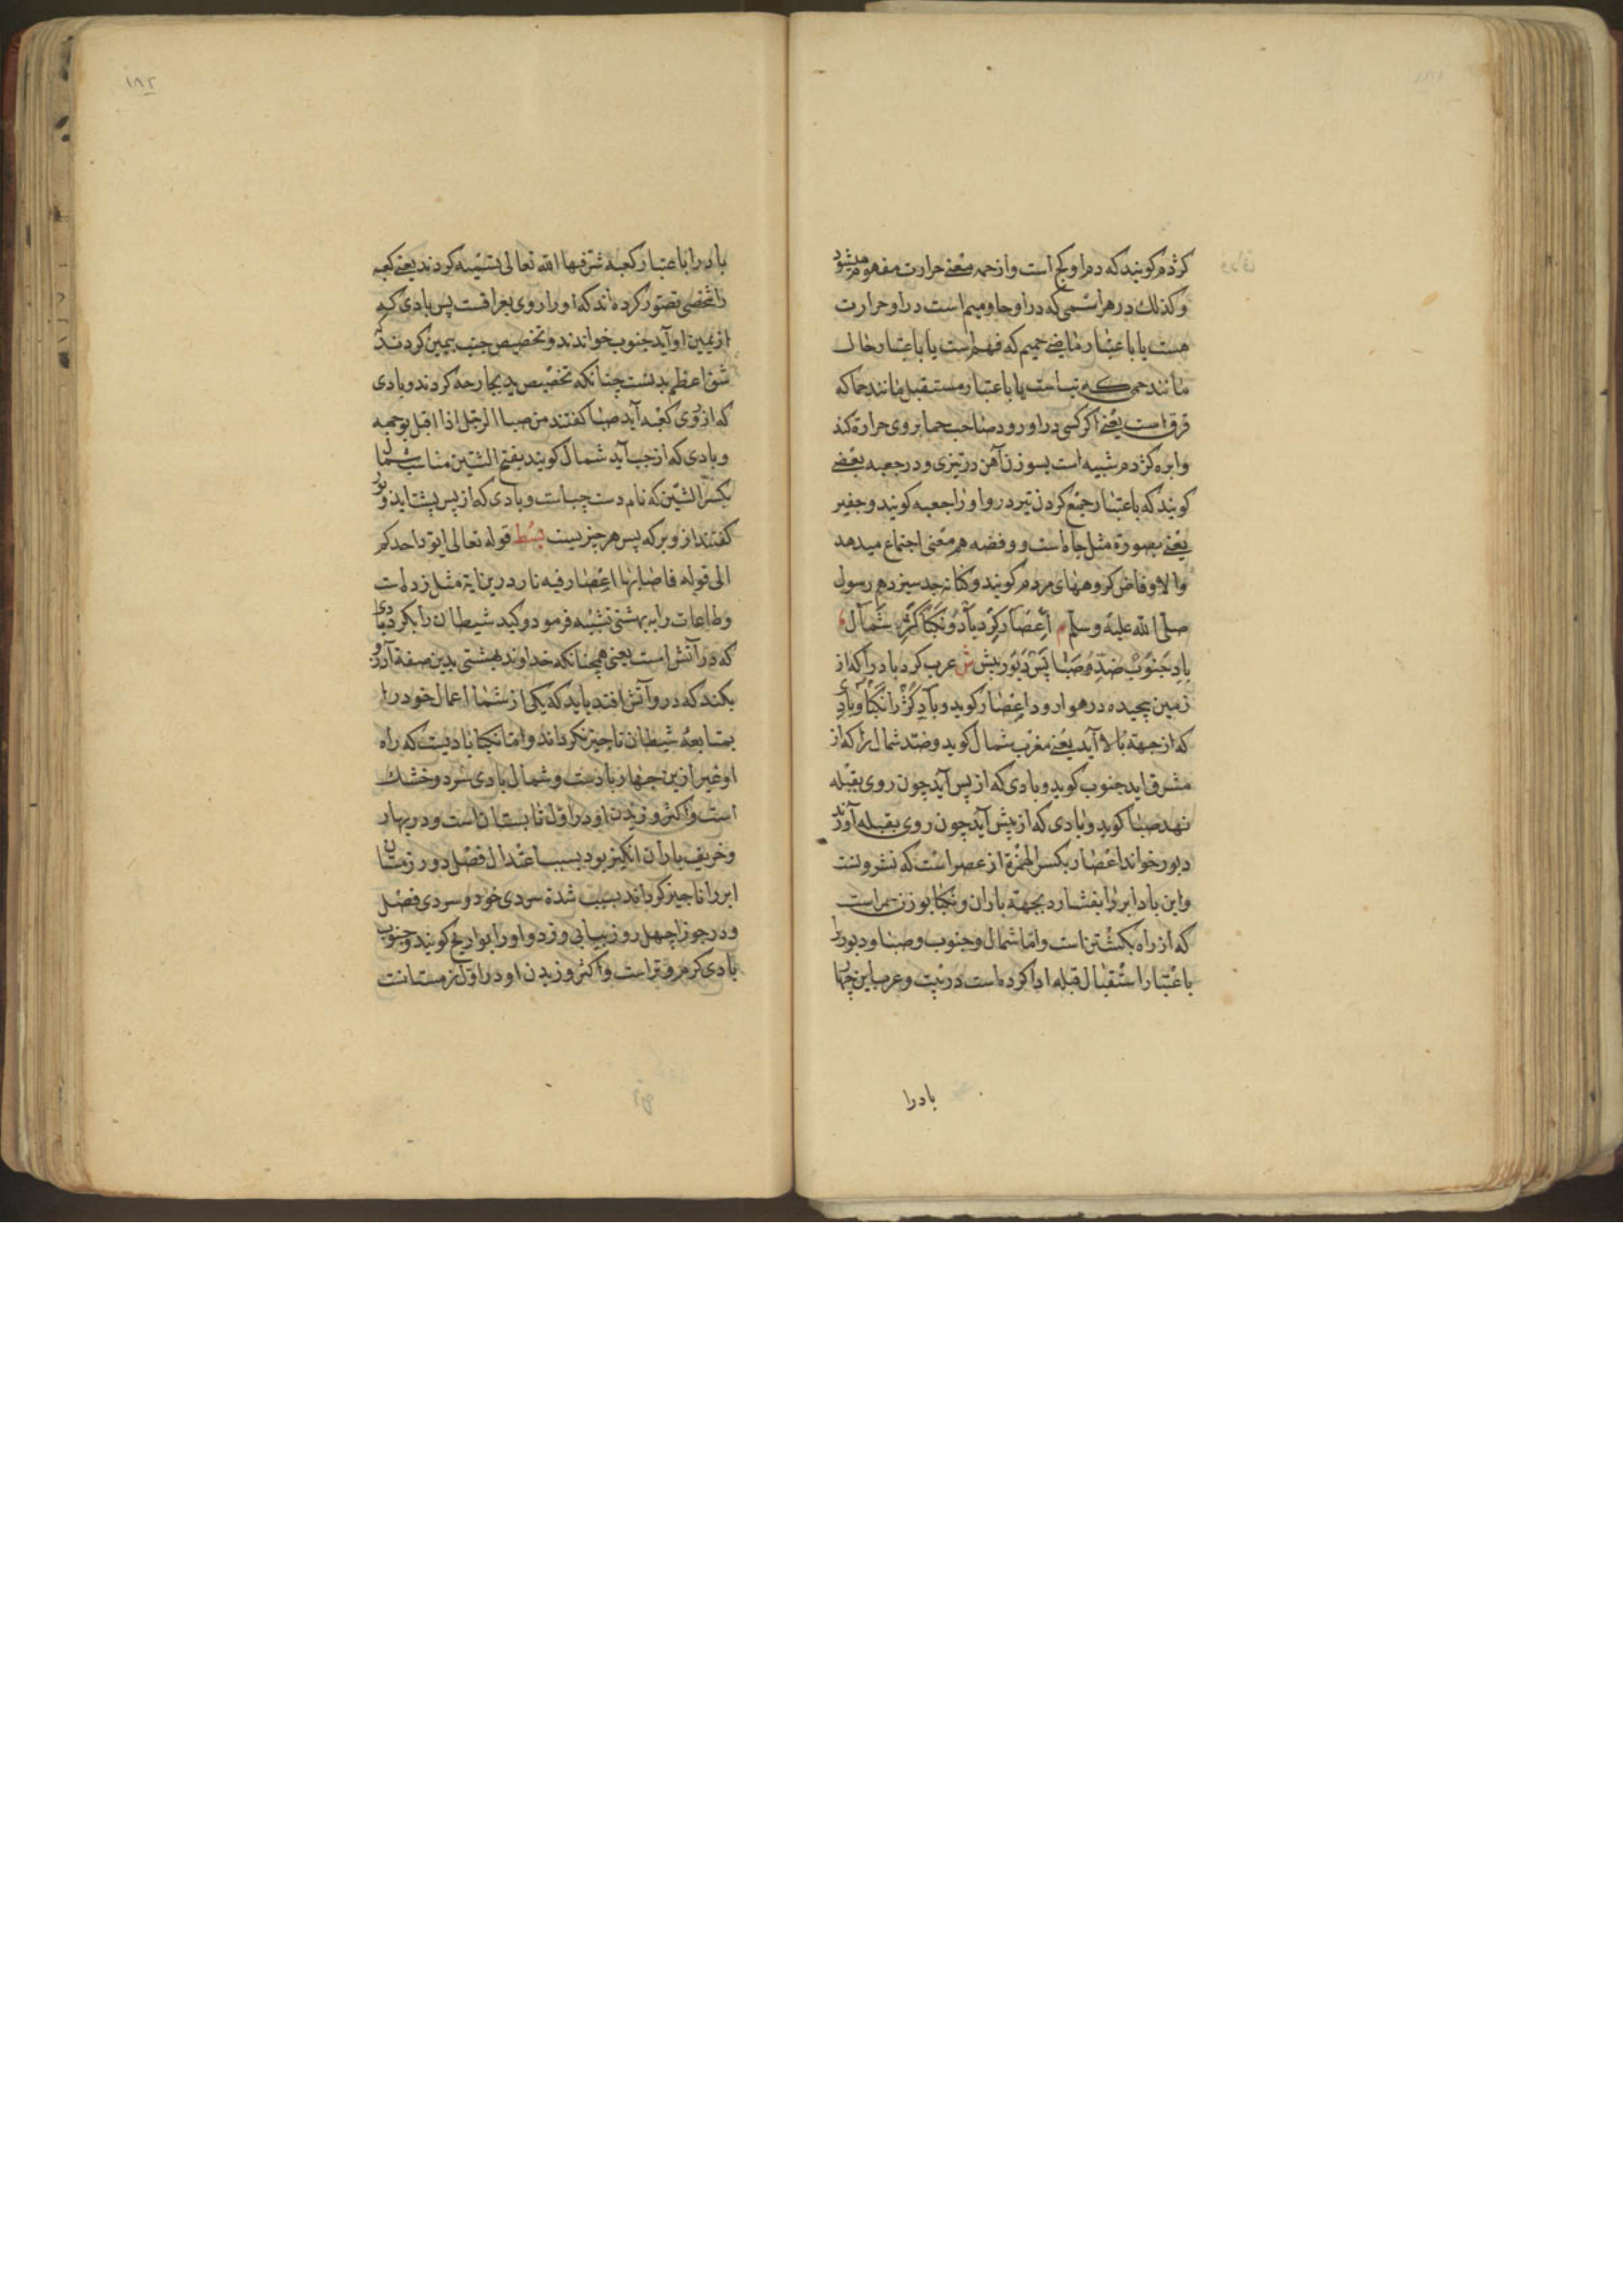 کژدم کویند که دم او کج است و از حمه معنی حرارت مفهوم میشود
و کذلک در هر اسمی که در او حا و میم است در او حرارت
هست یا باعتبار ماضی حمیم که فهم است یا باعتبار حال
مانند حمی که تب است یا باعتبار مستقبل مانند حما که
است یعنی اکر کسی در او رود صاحب حما بروی حرارة کند
وابره کژدم شبیه است بسوزن آهن در تیزی و در جعبه بعضی
کویند که باعتبار جمع کردن تیر در و او را جعبه کویند و جفیر
یعنی بصورة مثل چاه است و وفضه هم معنی اجتماع میدهد
والاوفاض کروههای مردم کویند و کنانه جد سیزدهم رسول
صلی الله علیه وسلم م اعصار کرد باد و نکبا کژ شمال
باد جنوب ضد و صبا پس دبور پیش ش عرب کرد باد را که از
زمین پیچیده در هوا رود اعصار کوید و باد کژ را نکبا و بادی
که از جهة بالا آید یعنی مغرب شمال کوید و ضد شمال را که از
مشرق اید جنوب کوید و بادی که از پس آید چون روی بقبله
نهد صبا کوید و بادی که از پیش آید چون روی بقبله آورند
دبور خواند اعصار بکسر الهمزة از عصر است که
واین باد ابر را بفشارد بجهة باران و نکبا بوزن حمراست
که از راه بکشتن است و اما شمال و جنوب و صبا و دبور را
باعتبار استقبال قبله ادا کرده است در بیت و عرب این چهار
بادرا
۱۸۲
باد را باعتبار کعبه شرفها الله تعالی تشبیه کردند یعنی کعبه
را شخصی تصور کرده اند که او را روی بعراقست پس بادی که
از یمین او آید جنوب خواندند و تخصیص جنب بیمین کردند که
شق اعظم بدنست چنانکه تخصیص ید بجارحه کردند و بادی
که از روی کعبه آید صبا کفتند من صبا الرجل اذا اقبل بوجهه
و بادی که از چپ آید شمال کویند بفتح الشین مناسب شمال
بکسر الشین که نام دست چپ است و بادی که از پس پشت اید دبور
کفتند از دبر که پس هر چیزیست بسط قوله تعالی ایود احدکم
الی قوله فاصابها اعصار فیه نار درین ایة مثل زده است
و طاعات را به بهشتی تشبیه فرمود و کید شیطان را بکرد بادی
که در آتش است یعنی همچنانکه خداوند بهشتی بدین صفة آرزو
نکند که در و آتش افتد باید که یکی از شما اعمال خود را
بمتابعة شیطان ناچیز نکرداند و اما نکبا بادیست که راه
او غیر ازین چهار بادست و شمال بادی سرد و خشک
است و اکثر وزیدن او در اول تابستان است و در بهار
و خریف باران انکیز بود بسبب اعتدال فصل و در زمستان
ابر را ناچیز کرداند بسبب شدة سردی خود و سردی فصل
و در جوزا چهل روز بیاپی وزد و او را بوارح کویند و جنوب
بادی کرم و تر است و اکثر وزیدن او در اول زمستانست